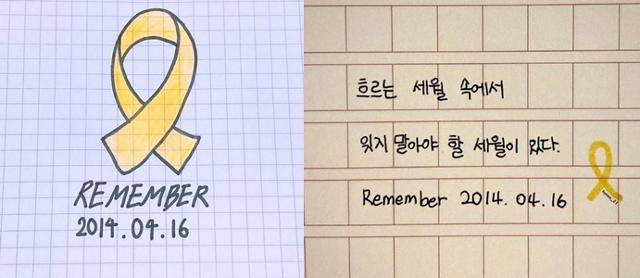 REMEMBER
2014.04.16
흐르는 세월 속에서
잊지 말아야 할 세월이 있다.
Remember 2014. 04. 16